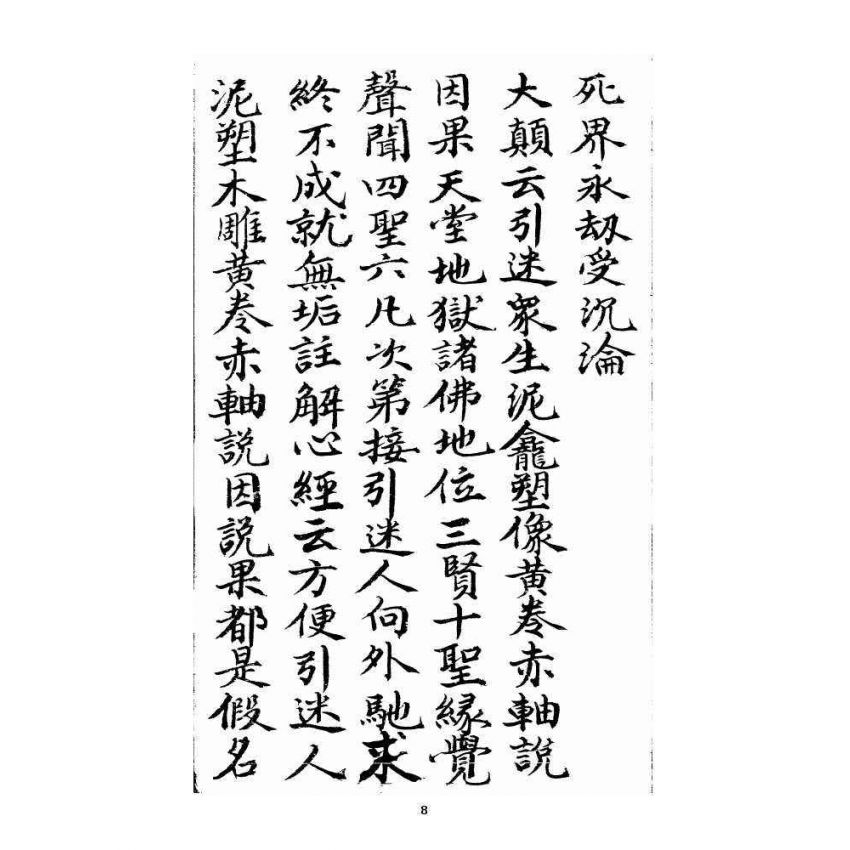 死界永劫受沉淪
大顛云引迷衆生泥龕塑像黄卷赤軸説
因果天堂地獄諸佛地位三賢十聖縁覺
聲聞四聖六凡次第接引迷人向外馳求
終不成就無垢註解心經云方便引迷人
泥塑木雕黄卷赤軸説因説果都是假名
8